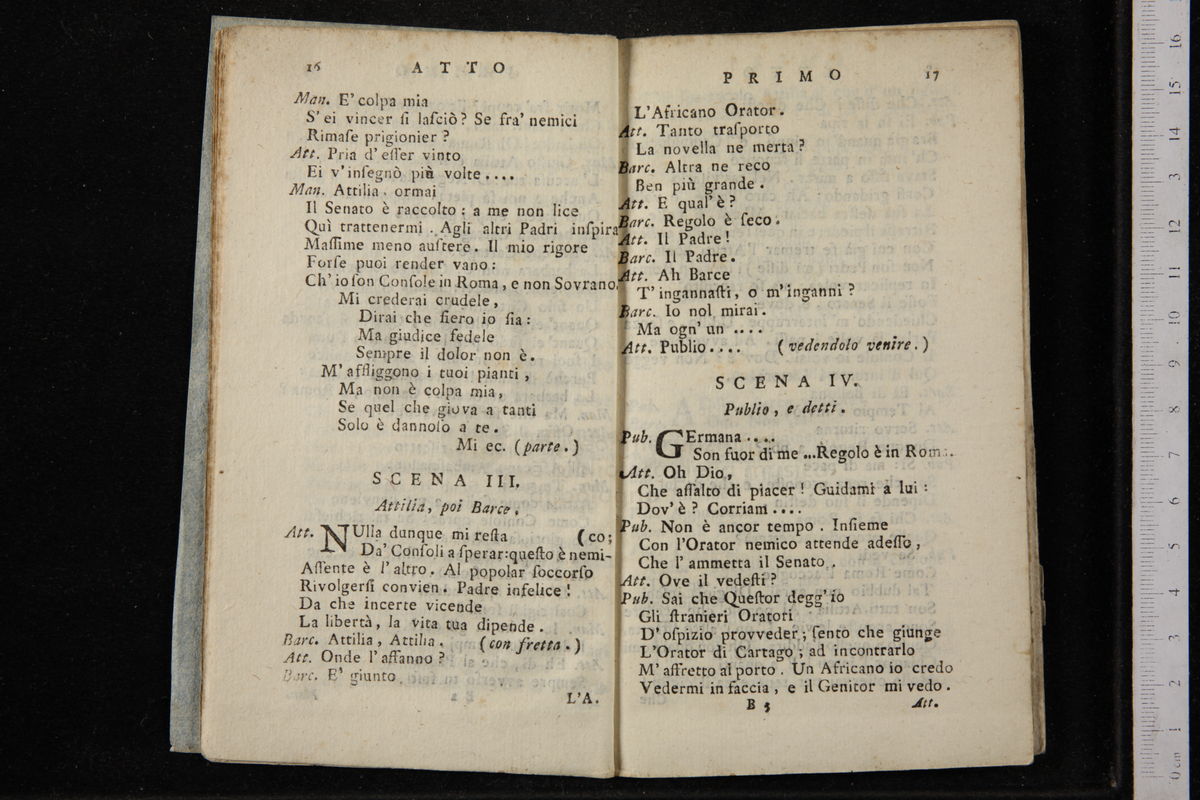 16 ATTO
Man. E' colpa mia
S' ei vincer ſi laſciò? Se fra' nemici
Rimaſe prigionier?
Att. Pria d' eſſer vinto
Ei v' inſegnò più volte....
Man. Attilia, ormai
Il Senato è raccolto: a me non lice
Quì trattenermi. Agli altri Padri inſpira
Maſſime meno auſtere. Il mio rigore
Forſe puoi render vano:
Ch' io ſon Conſole in Roma, e non Sovrano.
Mi crederai crudele,
Dirai che fiero io ſia:
Ma giudice fedele
Sempre il dolor non è.
M' affliggono i tuoi pianti,
Ma non è colpa mia,
Se quel che giova a tanti
Solo è dannoſo a te.
Mi ec. (parte.)
SCENA III.
Attilia, poi Barce.
Att. NUlla dunque mi reſta (co;
Da' Conſoli a ſperar: queſto è nemi-
Aſſente è l' altro. Al popolar ſoccorſo
Rivolgerſi convien. Padre infelice!
Da che incerte vicende
La libertà, la vita tua dipende.
Barc. Attilia, Attilia. (con fretta.)
Att. Onde l' affanno?
Barc. E' giunto
L'A.
PRIMO 17
L'Africano Orator.
Att. Tanto traſporto
La novella ne merta?
Barc. Altra ne reco
Ben più grande.
Att. E qual' è?
Barc. Regolo è ſeco.
Att. Il Padre!
Barc. Il Padre.
Att. Ah Barce
T' ingannaſti, o m' inganni?
Barc. Io nol mirai.
Ma ogn' un ....
Att. Publio.... (vedendolo venire.)
SCENA IV.
Publio, e detti.
Pub. GErmana ....
Son fuor di me ...Regolo è in Roma.
Att. Oh Dio,
Che aſſalto di piacer! Guidami a lui:
Dov' è? Corriam....
Pub. Non è ancor tempo. Inſieme
Con l'Orator nemico attende adeſſo,
Che l' ammetta il Senato.
Att. Ove il vedeſti?
Pub. Sai che Queſtor degg' io
Gli ſtranieri Oratori
D' oſpizio provveder; ſento che giunge
L'Orator di Cartago; ad incontrarlo
M' affretto al porto. Un Africano io credo
Vedermi in faccia, e il Genitor mi vedo.
B 3 Att.
0 cm 1 2 3 4 5 6 7 8 9 10 11 12 13 14 15 16